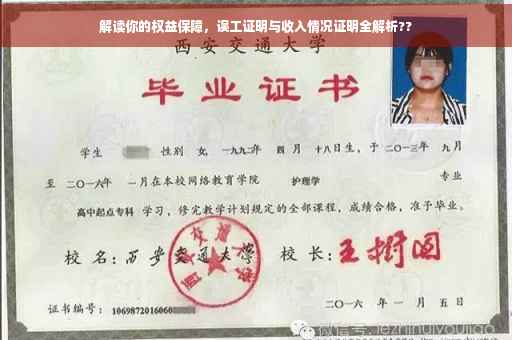 解读你的权益保障，误工证明与收入情况证明全解析??
西安交通大学
毕业证书
学生 性别 女, 一九九二年 四 月 十八日生, 于 二〇一三年 九 月
至 二〇一六年 一月在本校网络教育学院 护理学 专业
高中起点专科 学习, 修完教学计划规定的全部课程, 成绩合格, 准予毕业。
校 名: 西安交通大学 校 长: 王树国
西安交通大学
证书编号: 1069872016060
二〇一六 年 一 月 五 日
微信号: jezhihuiyoujiao